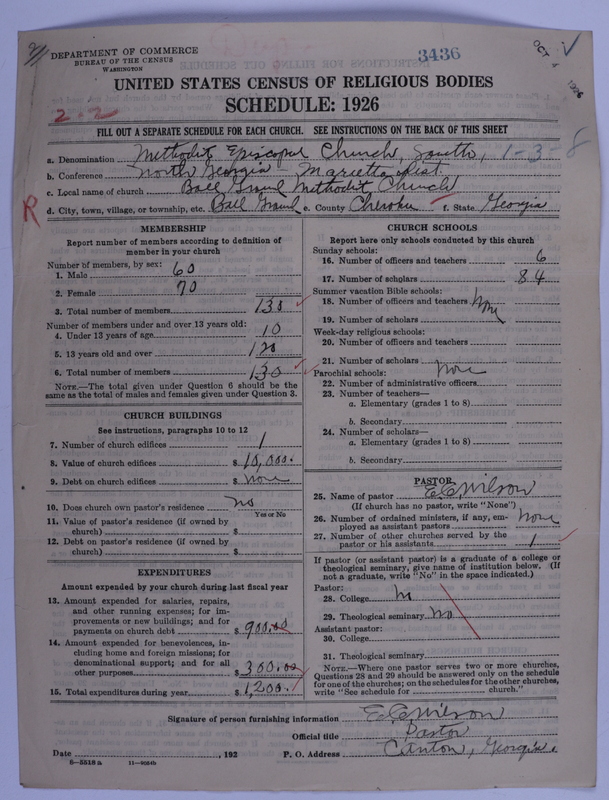 DEPARTMENT OF COMMERCE
BUREAU OF THE CENSUS
WASHINGTON
3436
OCT 4 1926
UNITED STATES CENSUS OF RELIGIOUS BODIES
SCHEDULE: 1926
2-2
FILL OUT A SEPARATE SCHEDULE FOR EACH CHURCH. SEE INSTRUCTIONS ON THE BACK OF THIS SHEET
a. Denomination Methodist Episcopal Church, South, 1-3-8
b. Conference North Georgia - Marietta Dist.
c. Local name of church Ball Ground Methodist Church
R
d. City, town, village, or township, etc. Ball Ground e. County Cherokee f. State Georgia
MEMBERSHIP
Report number of members according to definition of
member in your church
Number of members, by sex:
1. Male 60
2. Female 70
3. Total number of members 130
Number of members under and over 13 years old:
4. Under 13 years of age 10
5. 13 years old and over 120
6. Total number of members 130
NOTE.—The total given under Question 6 should be the
same as the total of males and females given under Question 3.
CHURCH BUILDINGS
See instructions, paragraphs 10 to 12
7. Number of church edifices 1
8. Value of church edifices $ 10,000.
9. Debt on church edifices $ none
10. Does church own pastor's residence no
Yes or No
11. Value of pastor's residence (if owned by
church) $
12. Debt on pastor's residence (if owned by
church) $
EXPENDITURES
Amount expended by your church during last fiscal year
13. Amount expended for salaries, repairs,
and other running expenses; for im-
provements or new buildings; and for
payments on church debt $ 900.00
14. Amount expended for benevolences, in-
cluding home and foreign missions; for
denominational support; and for all
other purposes $ 300.00
15. Total expenditures during year $ 1,200.
CHURCH SCHOOLS
Report here only schools conducted by this church
Sunday schools:
16. Number of officers and teachers 6
17. Number of scholars 84
Summer vacation Bible schools:
18. Number of officers and teachers None
19. Number of scholars
Week-day religious schools:
20. Number of officers and teachers
21. Number of scholars
Parochial schools: none
22. Number of administrative officers
23. Number of teachers—
a. Elementary (grades 1 to 8)
b. Secondary
24. Number of scholars—
a. Elementary (grades 1 to 8)
b. Secondary
PASTOR
25. Name of pastor E. C. Wilson
(If church has no pastor, write "None")
26. Number of ordained ministers, if any, em-
ployed as assistant pastors none
27. Number of other churches served by the
pastor or his assistants 1
If pastor (or assistant pastor) is a graduate of a college or
theological seminary, give name of institution below. (If
not a graduate, write "No" in the space indicated.)
Pastor:
28. College No
29. Theological seminary No
Assistant pastor:
30. College
31. Theological seminary
NOTE.—Where one pastor serves two or more churches,
Questions 28 and 29 should be answered only on the schedule
for one of the churches; on the schedules for the other churches,
write "See schedule for church."
Signature of person furnishing information E. C. Wilson
Official title Pastor
Date , 192 P. O. Address Canton, Georgia.